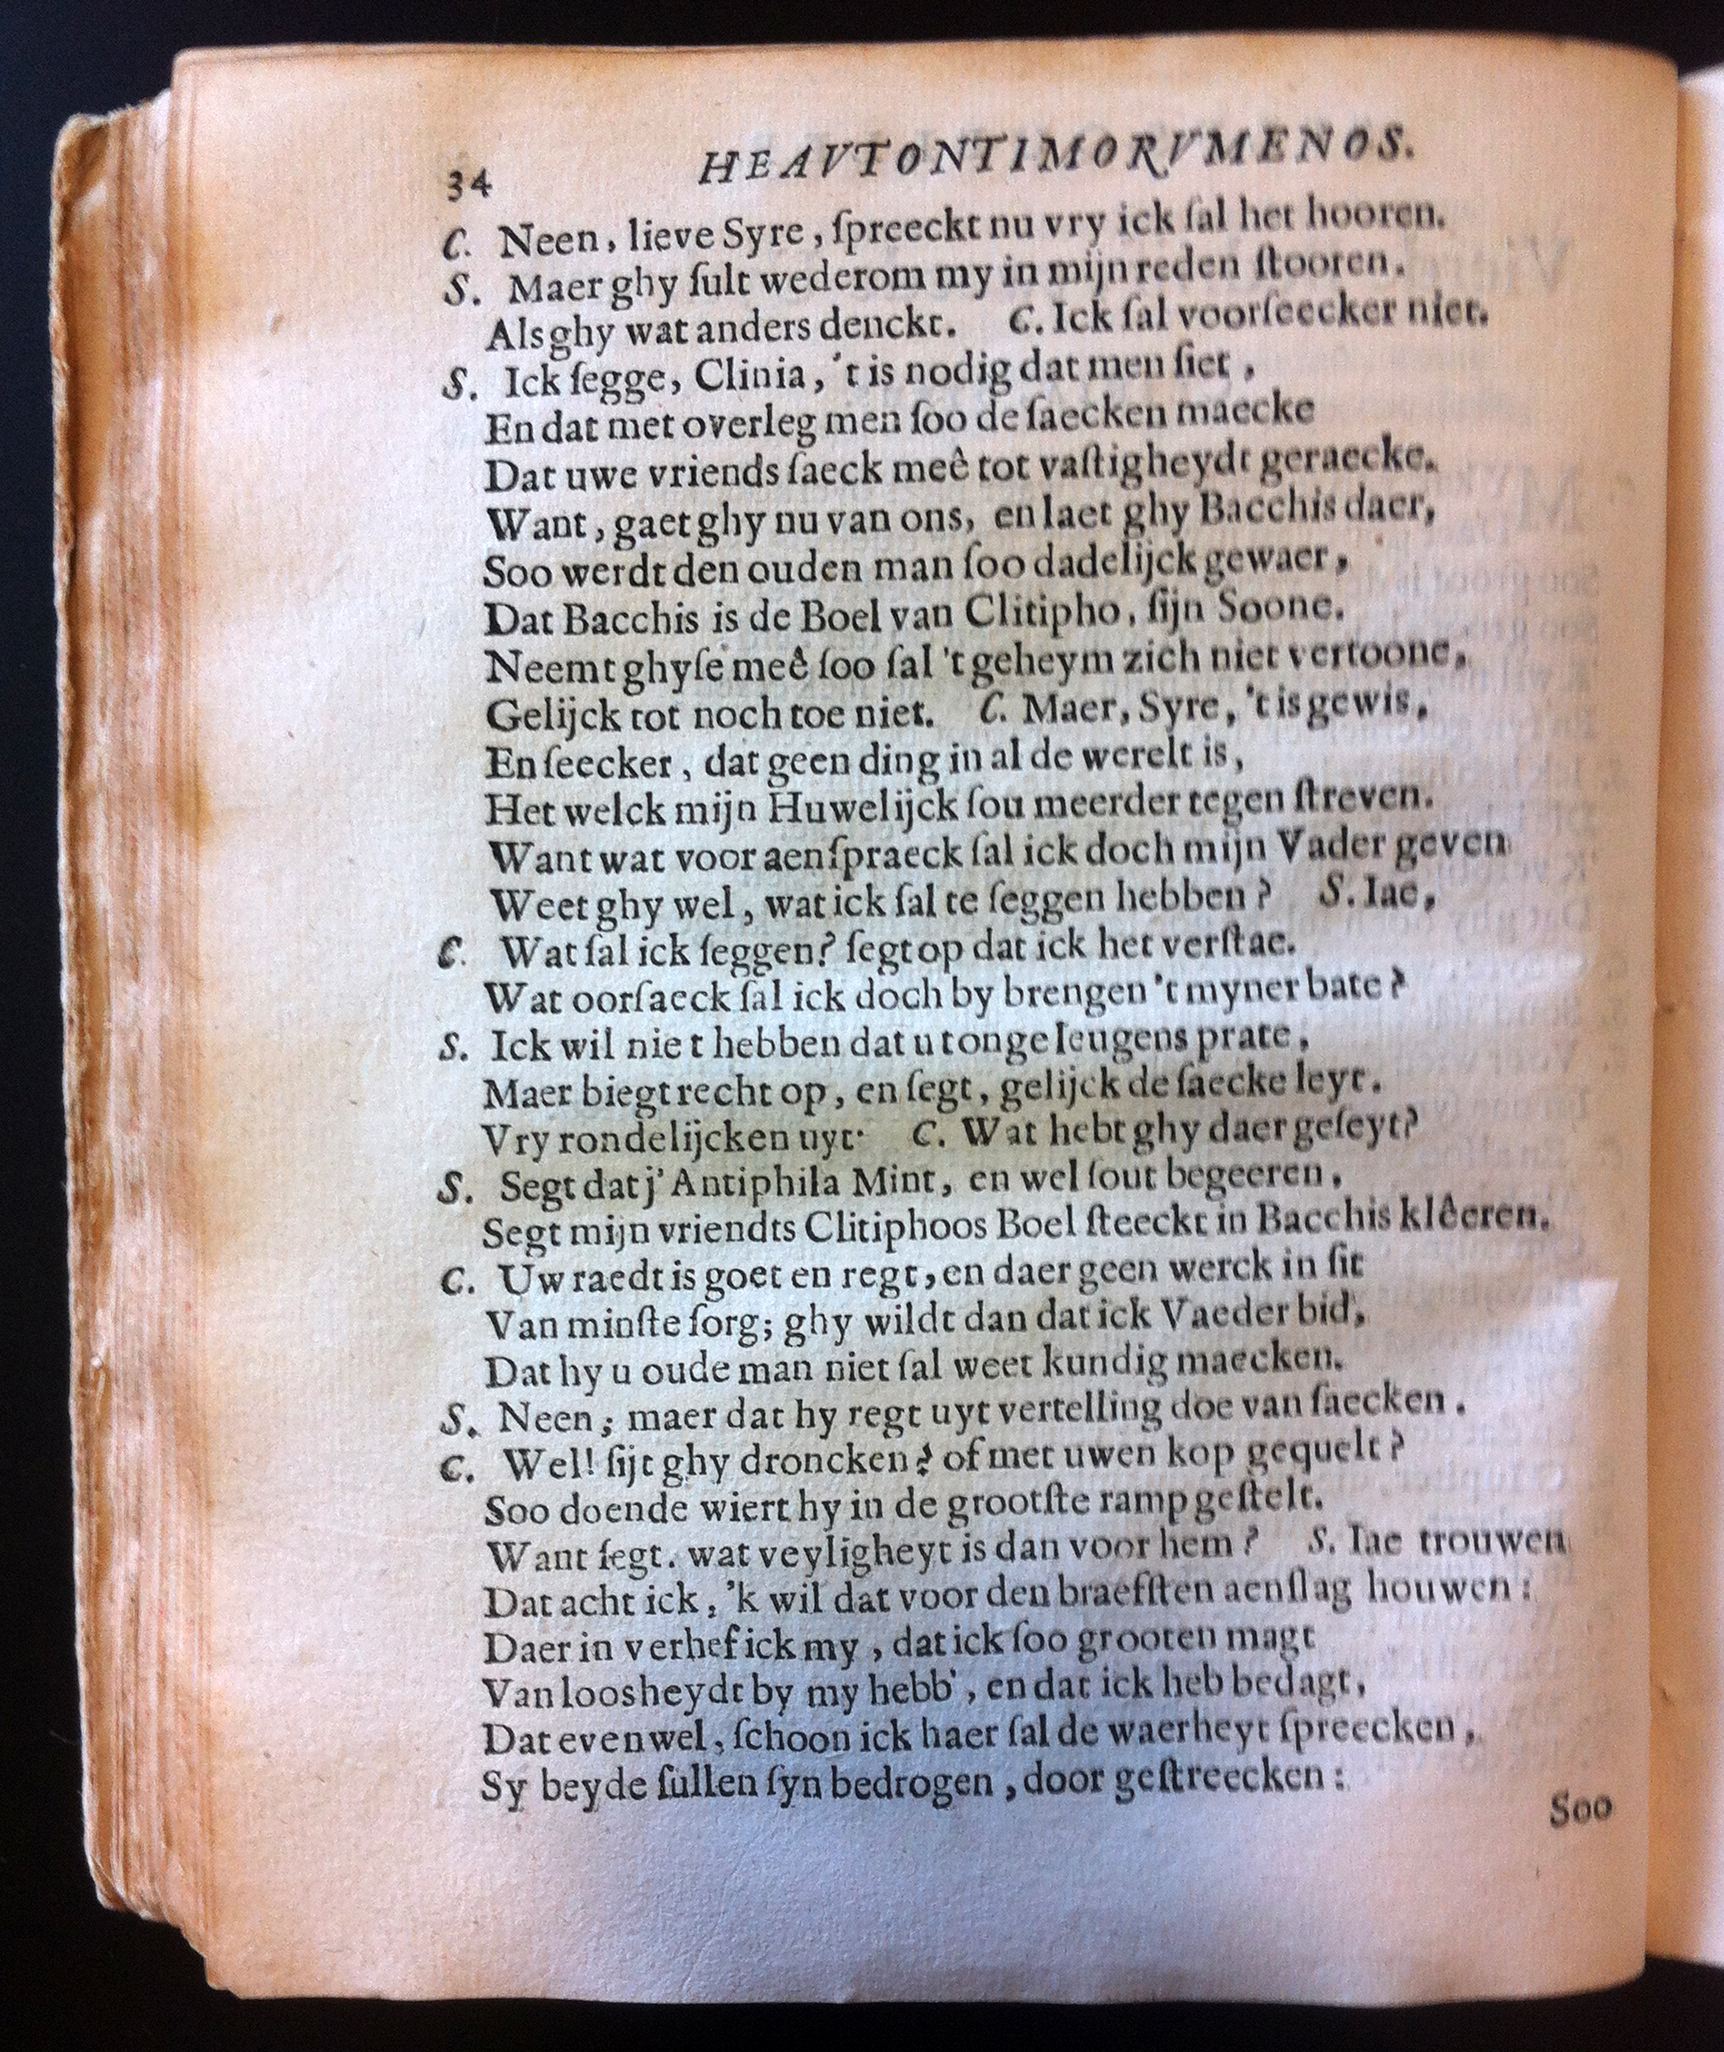 34 HEAVTONTIMORVMENOS.
C. Neen, lieve Syre, ſpreeckt nu vry ick ſal het hooren.
S. Maer ghy ſult wederom my in mijn reden ſtooren.
Als ghy wat anders denckt. C. Ick ſal voorſeecker niet.
S. Ick ſegge, Clinia, 't is nodig dat men ſiet,
En dat met overleg men ſoo de ſaecken maecke
Dat uwe vriends ſaeck meê tot vaſtigheydt geraecke.
Want, gaet ghy nu van ons, en laet ghy Bacchis daer,
Soo werdt den ouden man ſoo dadelijck gewaer,
Dat Bacchis is de Boel van Clitipho, ſijn Soone.
Neemt ghyſe meê ſoo ſal 't geheym zich niet vertoone,
Gelijck tot noch toe niet. C. Maer, Syre, 't is gewis,
En ſeecker, dat geen ding in al de werelt is,
Het welck mijn Huwelijck ſou meerder tegen ſtreven.
Want wat voor aenſpraeck ſal ick doch mijn Vader geven
Weet ghy wel, wat ick ſal te ſeggen hebben? S. Iae,
C. Wat ſal ick ſeggen? ſegt op dat ick het verſtae.
Wat oorſaeck ſal ick doch by brengen 't myner bate?
S. Ick wil niet hebben dat u tonge leugens prate,
Maer biegt recht op, en ſegt, gelijck de ſaecke leyt.
Vry rondelijcken uyt. C. Wat hebt ghy daer geſeyt?
S. Segt dat j' Antiphila Mint, en wel ſout begeeren,
Segt mijn vriendts Clitiphoos Boel ſteeckt in Bacchis klêeren.
C. Uw raedt is goet en regt, en daer geen werck in ſit
Van minſte ſorg; ghy wildt dan dat ick Vaeder bid,
Dat hy u oude man niet ſal weet kundig maecken.
S. Neen; maer dat hy regt uyt vertelling doe van ſaecken.
C. Wel! ſijt ghy droncken? of met uwen kop gequelt?
Soo doende wiert hy in de grootſte ramp geſtelt.
Want ſegt. wat veyligheyt is dan voor hem? S. Iae trouwen
Dat acht ick, 'k wil dat voor den braefſten aenſlag houwen:
Daer in verhef ick my, dat ick ſoo grooten magt
Van loosheydt by my hebb', en dat ick heb bedagt,
Dat evenwel, ſchoon ick haer ſal de waerheyt ſpreecken,
Sy beyde ſullen ſyn bedrogen, door geſtreecken:
Soo